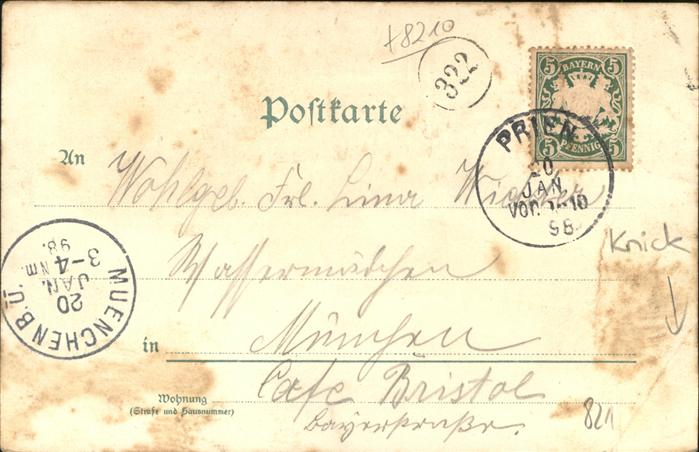 +8210
322
5 BAYERN 5
5 PFENNIG 5
Postkarte
PRIEN
20
JAN
VOR. 9-10
98
An Wohlgeb. Frl. Lina
Knick
Wassermädchen
MUENCHEN B.Ü.
20
JAN.
3-4 Nm.
98.
in München
Cafe Bristol
Wohnung
(Straße und Hausnummer)
Bayerstraße.
821